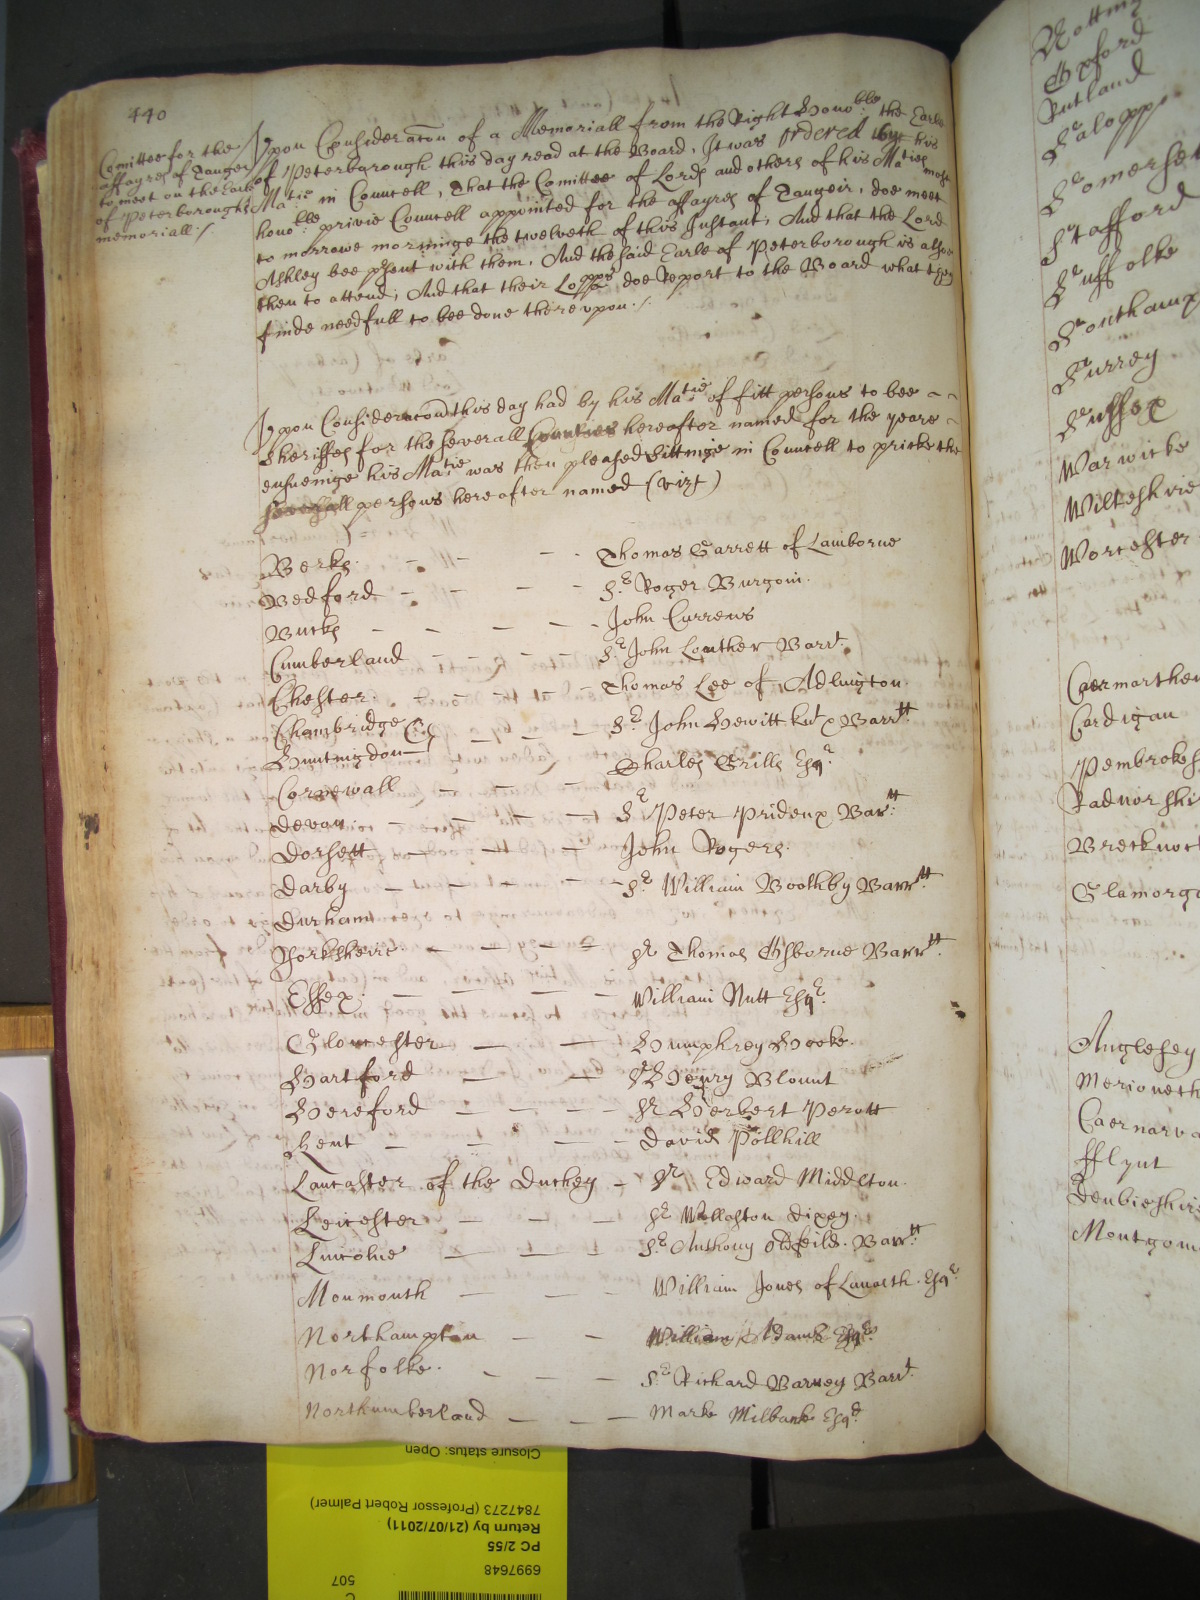 440
Comittee for the
affayres of Tanger
to meet on the Earle
of Peterboroughs
memoriall ./
Upon Consideracon of a Memoriall from the Right Honoble: the Earle
of Peterborough this day read at the Board, It was ordered by his
Matie: in Councell, That the Comittee of Lords and others of his Maties most
honoble: privie Councell appointed for the affayres of Tangeir, doe meet
to morrowe morninge the twelveth of this Instant, And that the Lord
Ashley bee psent with them, And the said Earle of Peterborough is alsoe
then to attend; And that their Lopps: doe Report to the Board what they
finde needfull to bee done thereupon ./
Upon Consideracon this day had by his Matie: of fitt persons to bee
Sheriffes for the severall Counties hereafter named for the yeare
ensueinge his Matie: was then pleased sittinge in Councell to pricke the
severall persons hereafter named (vizt)
Berks - - - Thomas Garrett of Lamborne
Bedford - - - - Sr. Roger Burgoin.
Bucks - - - - John Currews
Cumberland - - - - Sr. John Lowther Barrt.
Chester - - - - Thomas Lee of Adlington
Chambridge &
Huntingdon - - - Sr. John Hewitt knt & Barrtt.
Cornewall - - - Charles Grills Esqr.
Devon - - - - Sr. Peter Prideux Bartt:
Dorsett - - - John Rogers.
Darby - - - - Sr. William Boothby Barrtt.
Durham
Yorksheire - - - - Sr Thomas Osborne Barrtt.
Essex - - - - William Nutt Esqr.
Glocester - - - Humphrey Hooke.
Hartford - - Sr Henry Blount
Hereford - - - - Sr Herbert Perott
Kent - - - - David Pollhill
Lancaster of the Duchey - Sr Edward Middlton
Leicester - - - Sr Wollaston Dixey.
Lincolne - - - Sr. Anthony Oldfeild. Barrtt.
Monmouth - - - William Jones of Lanarth. Esqr.
Northampton - - William Adams Esqr.
Norfolke - - - Sr. Richard Barney Barrt.
Northumberland - - - Marke Milbanke Esqr.
Notting
Oxford
Rutland
Salopp
Somerset
Stafford
Suffolke
Southamp
Surrey
Sussex
Warwicke
Wilteshire
Worcester
Caermarthen
Cardigan
Pembrokesh
Radnorshi
Brecknoc
Glamorga
Anglesey
Merioneth
Caernarva
fflynt
Denbieshire
Montgom
Closure status: Open
7847273 (Professor Robert Palmer)
Return by (21/07/2011)
PC 2/55
6997648
507